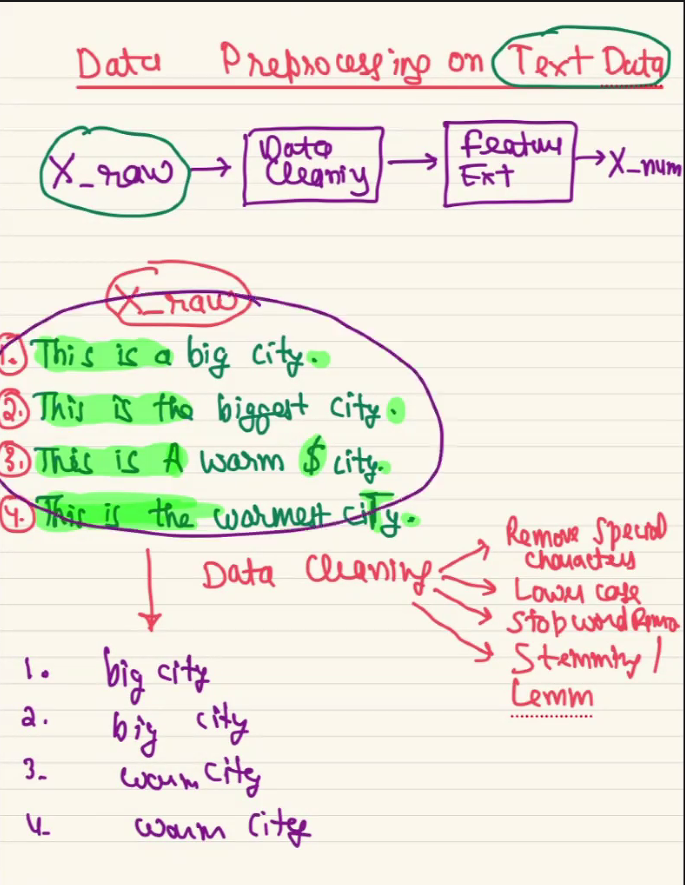 Data Preprocessing on Text Data
X_raw → Data Cleaning → Feature Ext → X_num
X_raw
1. This is a big city.
2. This is the biggest city.
3. This is A warm $ city.
4. This is the warmest ciTy.
Data Cleaning
Remove Special
characters
Lower case
Stopword Remo
Stemming /
Lemm
1. big city
2. big city
3- warm city
4- warm city